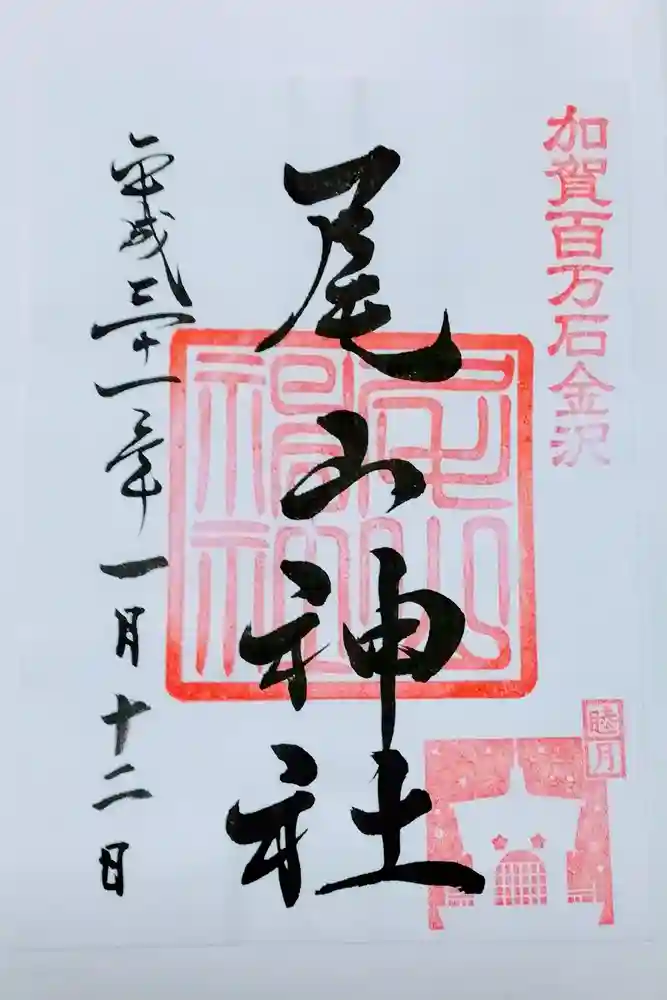 加賀百万石金沢
尾山神社
睦月
平成三十一年一月十二日